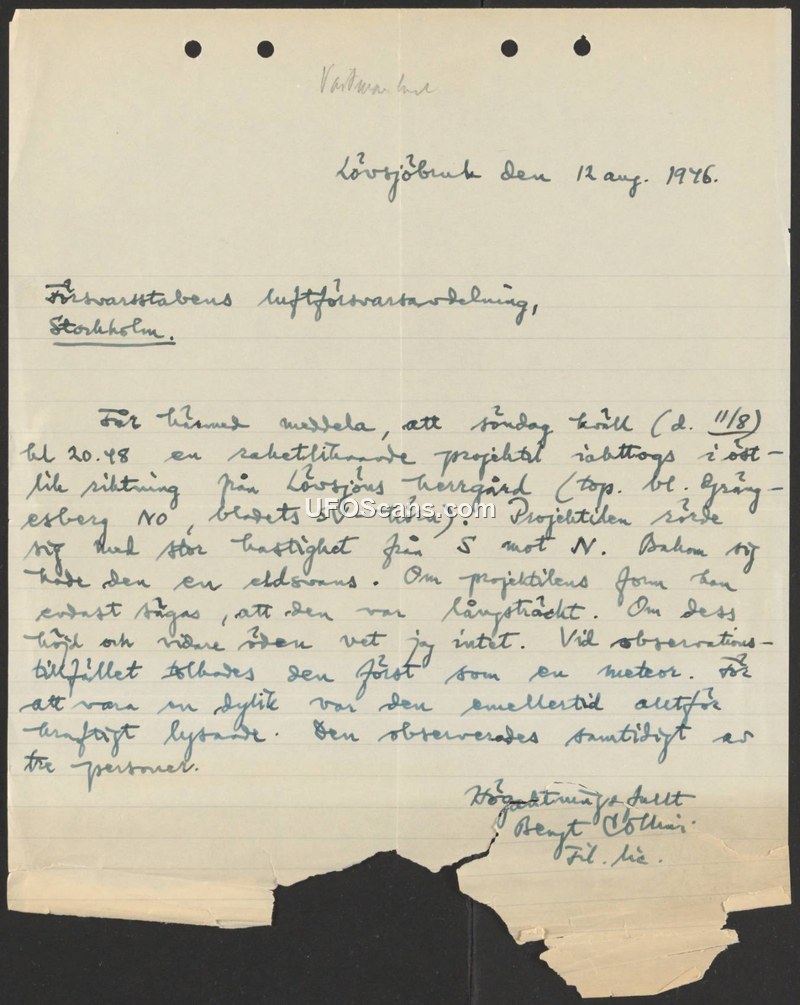 Västmanland
Lövsjöbruk den 12 aug. 1946.
Försvarsstabens luftförsvarsavdelning,
Stockholm.
Får härmed meddela, att söndag kväll (d. 11/8)
kl 20.48 en raketliknande projektil iakttogs i öst-
lik riktning från Lövsjöns herrgård (top. bl. Gräng-
esberg NO, bladets SV-hörn). Projektilen rörde
sig med stor hastighet från S mot N. Bakom sig
hade den en eldsvans. Om projektilens form kan
endast sägas, att den var långsträckt. Om dess
höjd och vidare öden vet jag intet. Vid observations-
tillfället tolkades den först som en meteor. För
att vara en dylik var den emellertid alltför
kraftigt lysande. Den observerades samtidigt av
tre personer.
Högaktningsfullt
Bengt Collini
Fil. lic.
UFOScans.com